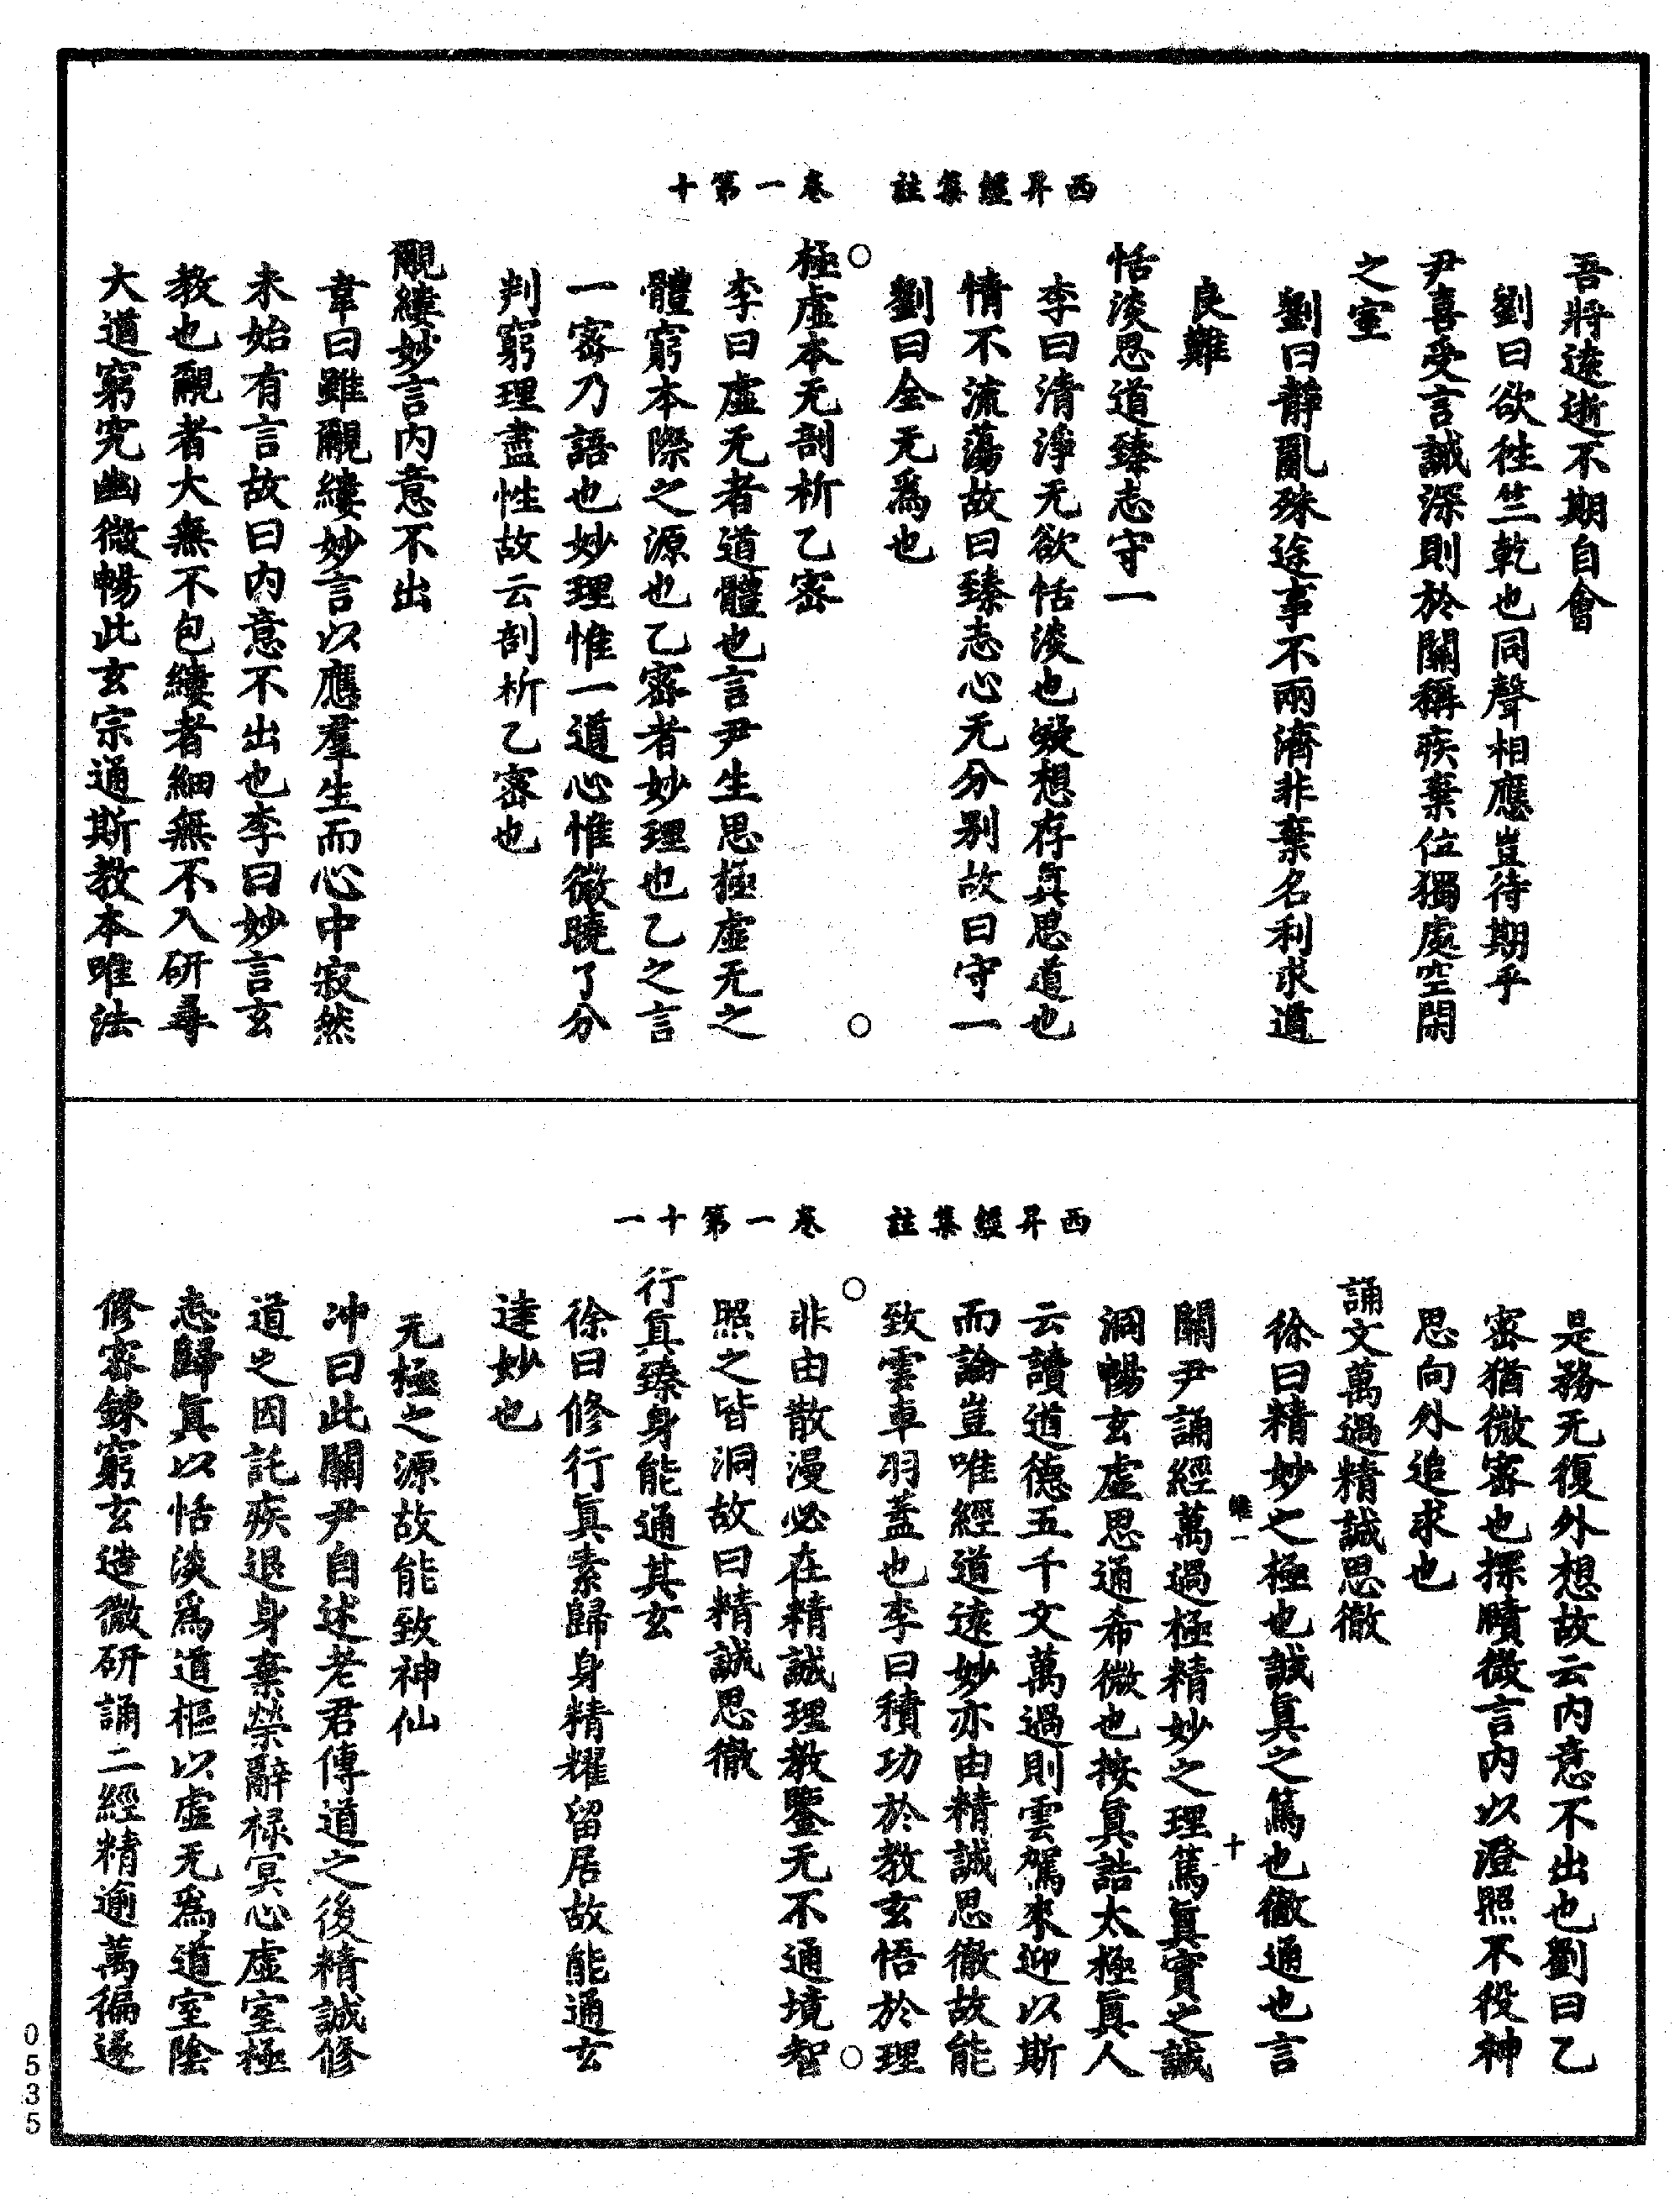 西昇經集註　卷一第十
吾將遠逝不期自會
劉曰欲往竺乾也同聲相應豈待期乎
尹喜受言誡深則於關稱疾棄位獨處空閑
之室
劉曰靜亂殊途事不兩濟非棄名利求道
良難
恬淡思道臻志守一
李曰清淨无欲恬淡也凝想存真思道也
情不流蕩故曰臻志心无分别故曰守一
劉曰全无爲也
極虛本无剖析乙密
李曰虛无者道體也言尹生思極虛无之
體窮本際之源也乙密者妙理也乙之言
一密乃語也妙理惟一道心惟微曉了分
判窮理盡性故云剖析乙密也
覼縷妙言内意不出
韋曰雖覼縷妙言以應羣生而心中寂然
未始有言故曰内意不出也李曰妙言玄
教也覼者大無不包縷者細無不入研尋
大道窮究幽微暢此玄宗通斯教本唯法
西昇經集註　卷一第十一
是務无復外想故云内意不出也劉曰乙
密猶微密也探賾微言内以澄照不役神
思向外追求也
誦文萬過精誠思徹
徐曰精妙之極也誠真之篤也徹通也言
維一　十
關尹誦經萬過極精妙之理篤真實之誠
洞暢玄虛思通希微也按真誥太極真人
云讀道德五千文萬過則雲駕來迎以斯
而論豈唯經道遠妙亦由精誠思徹故能
致雲車羽蓋也李曰積功於教玄悟於理
非由散漫必在精誠理教鑒无不通境智
照之皆洞故曰精誠思徹
行真臻身能通其玄
徐曰修行真素歸身精耀留居故能通玄
達妙也
元極之源故能致神仙
冲曰此關尹自述老君傳道之後精誠修
道之因託疾退身棄榮辭禄冥心虛室極
志歸真以恬淡爲道樞以虛无爲道室陰
修密鍊窮玄造微研誦二經精逾萬徧遂
0535